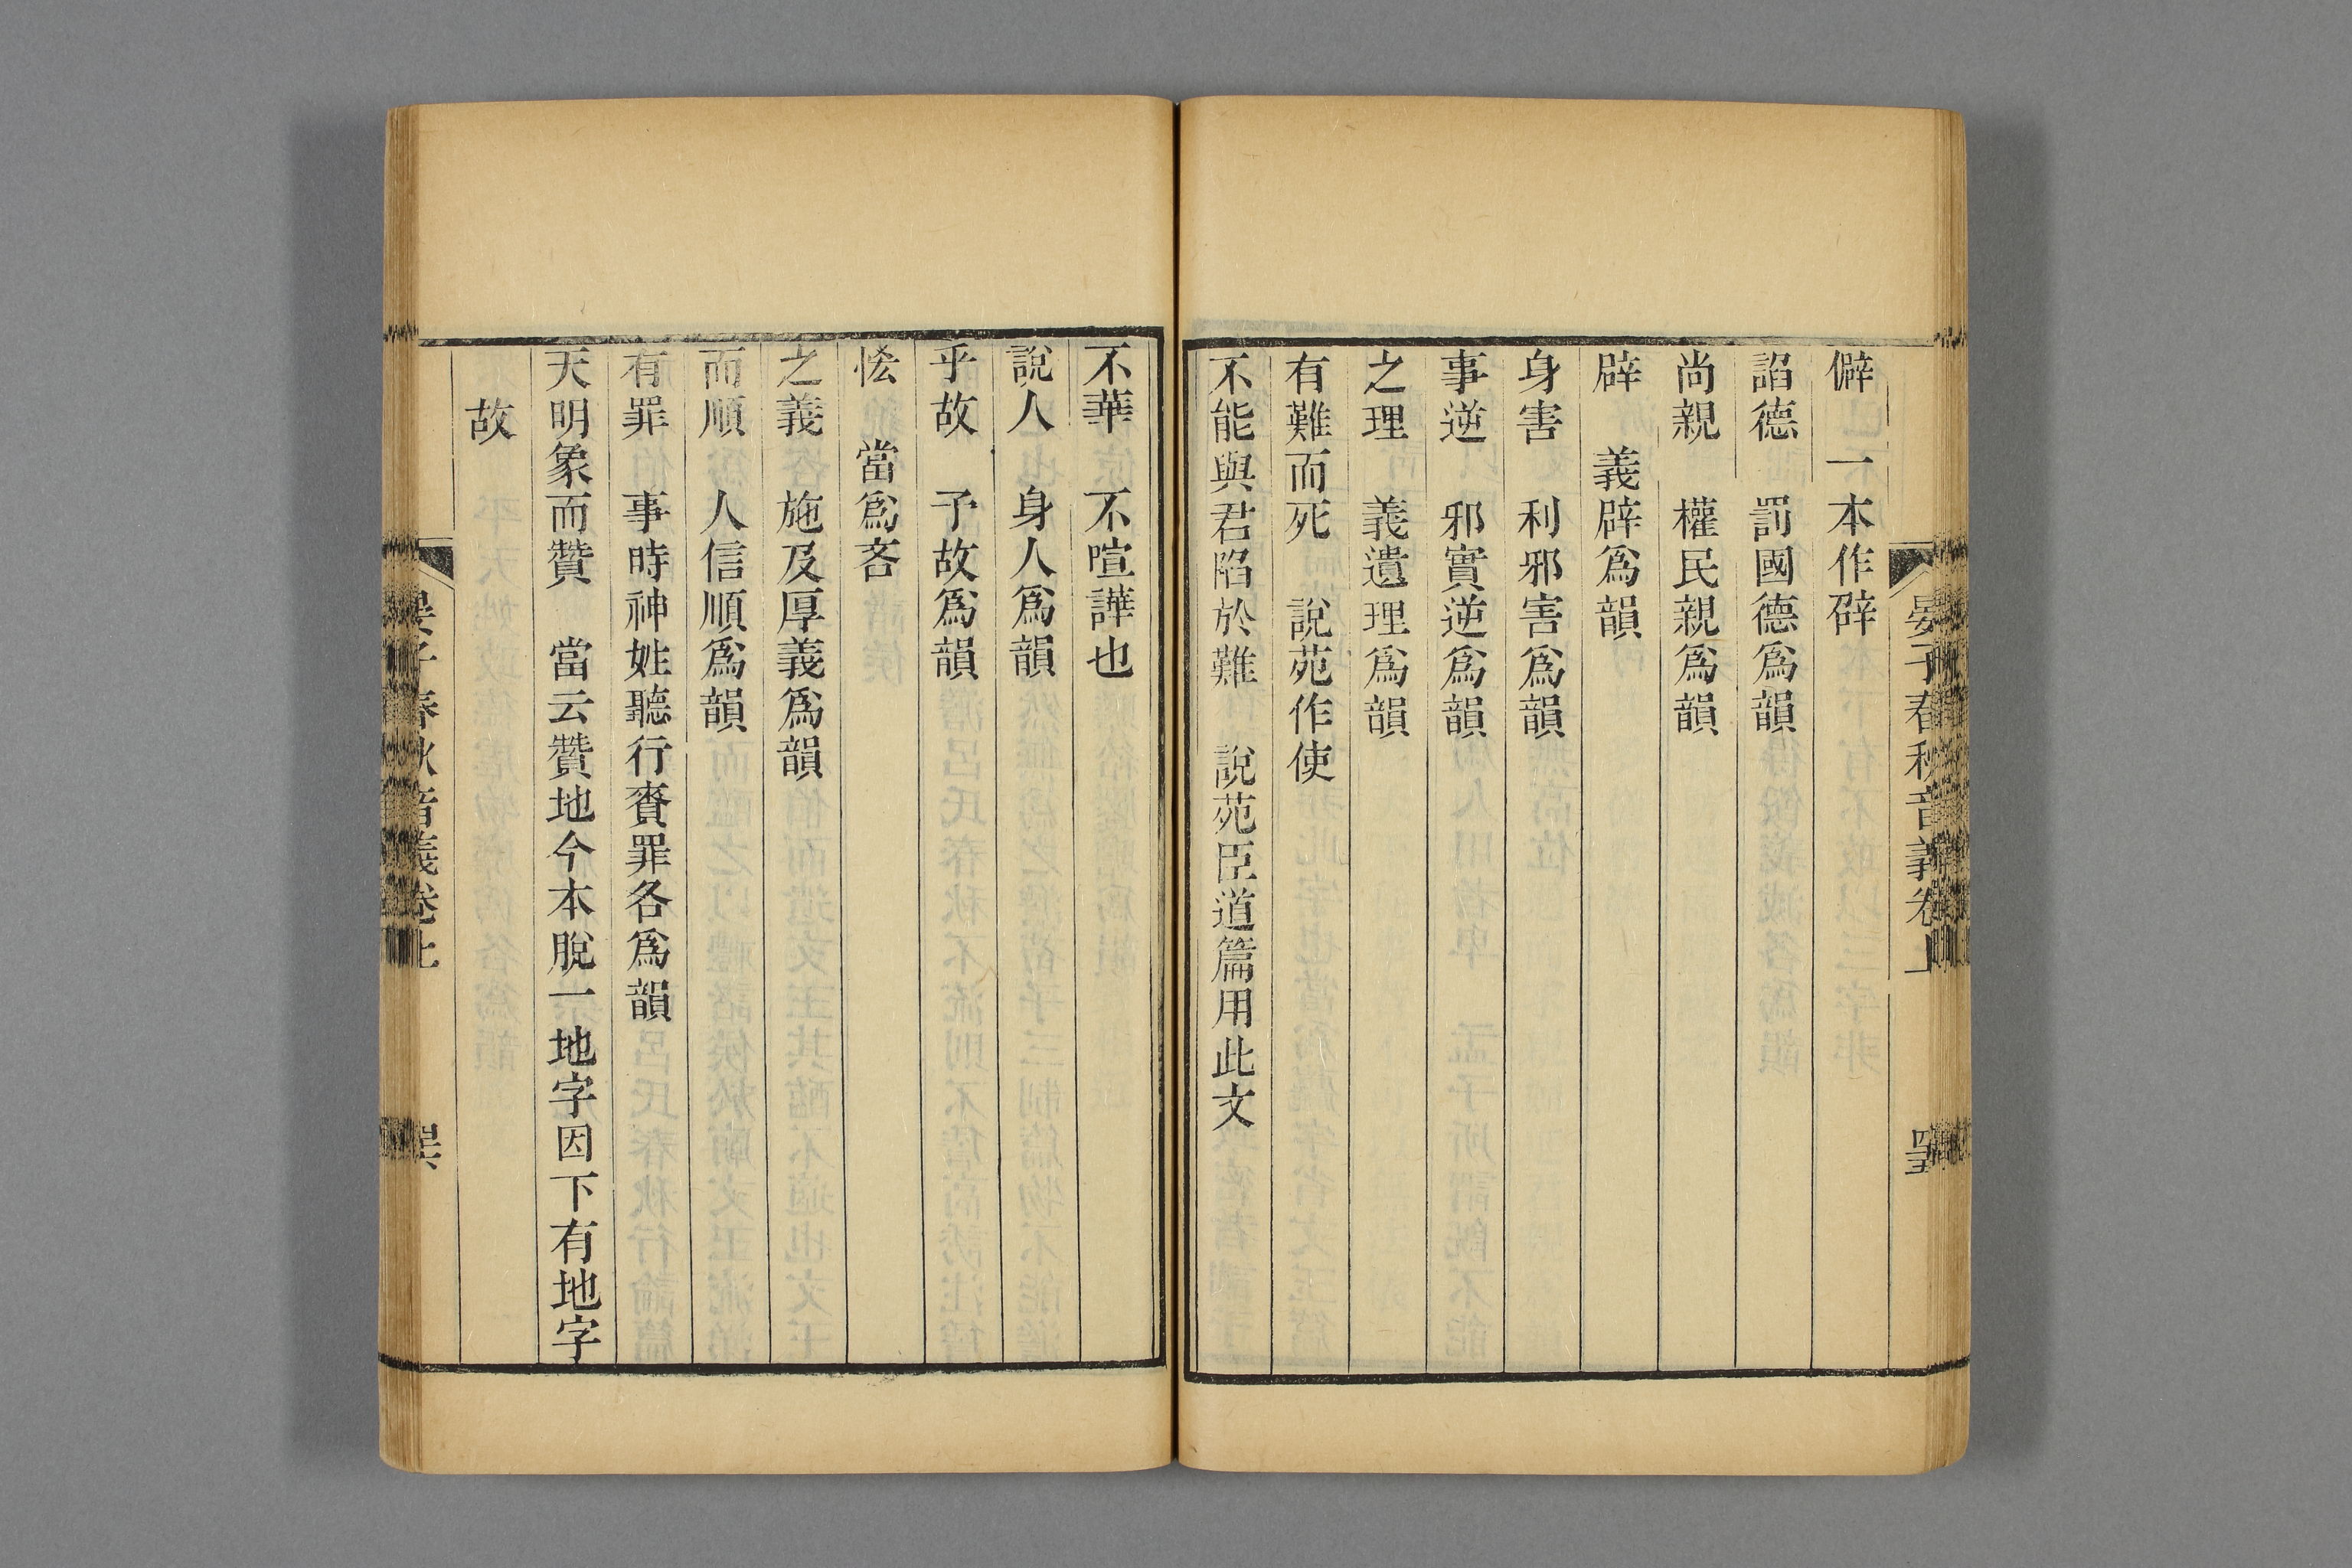 晏子春秋音義卷上
僻　一本作辟
諂德　罰國德爲韻
尚親　權民親爲韻
辟　義辟爲韻
身害　利邪害爲韻
事逆　邪實逆爲韻
之理　義遺理爲韻
有難而死　說苑作使
不能與君陷於難　說苑臣道篇用此文
不華　不喧譁也
說人　身人爲韻
乎故　予故爲韻
恡　當爲吝
之義　施及厚義爲韻
而順　人信順爲韻
有罪　事時神姓聽行賚罪各爲韻
天明象而贊　當云贊地今本脫一地字因下有地字
故
晏子春秋音義卷上